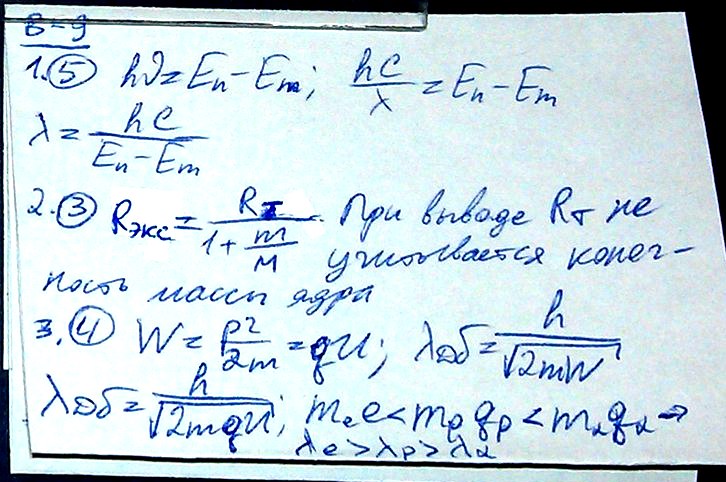 В-9
1.⑤ hν = Eₙ − Eₘ; hc/λ = Eₙ − Eₘ
λ = hc/(Eₙ − Eₘ)
2.③ Rэкс = Rт/(1 + m/M). При выводе Rт не
учитывается конеч-
ность массы ядра
3.④ W = p²/2m = qU; λДБ = h/√(2mW)
λДБ = h/√(2mqU); mₑe < mₚqₚ < m_αq_α →
λe > λp > λα